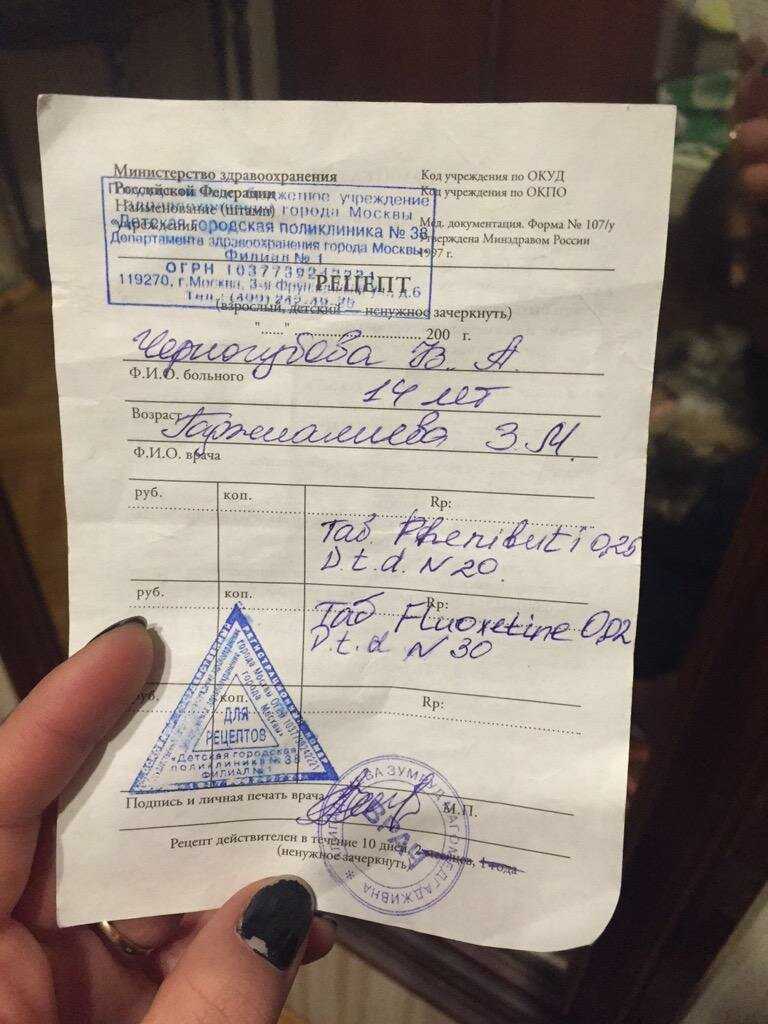 Министерство здравоохранения
Российской Федерации
Наименование (штамп)
учреждения
Код учреждения по ОКУД
Код учреждения по ОКПО
Мед. документация. Форма № 107/у
Утверждена Минздравом России
1997 г.
бюджетное учреждение
здравоохранения города Москвы
«Детская городская поликлиника № 38
Департамента здравоохранения города Москвы»
Филиал № 1
ОГРН
119270, г.Москва, 3-я Фрунзенская ул., д.6
РЕЦЕПТ
(взрослый, детский — ненужное зачеркнуть)
"......" ................................ 200 г.
Черногубова В. А.
Ф.И.О. больного
14 лет
Возраст
З. М.
Ф.И.О. врача
руб. коп. Rp:
Таб. Phenibuti 0,25
D.t.d. N 20.
руб. коп. Rp:
Таб Fluoxetine 0,02
D.t.d N 30
руб. коп. Rp:
города Москвы
ДЛЯ
РЕЦЕПТОВ
«Детская городская
поликлиника № 38
ФИЛИАЛ № 1
Подпись и личная печать врача М.П.
ВРАЧ
Рецепт действителен в течение 10 дней, 2 месяцев, 1 года
(ненужное зачеркнуть)